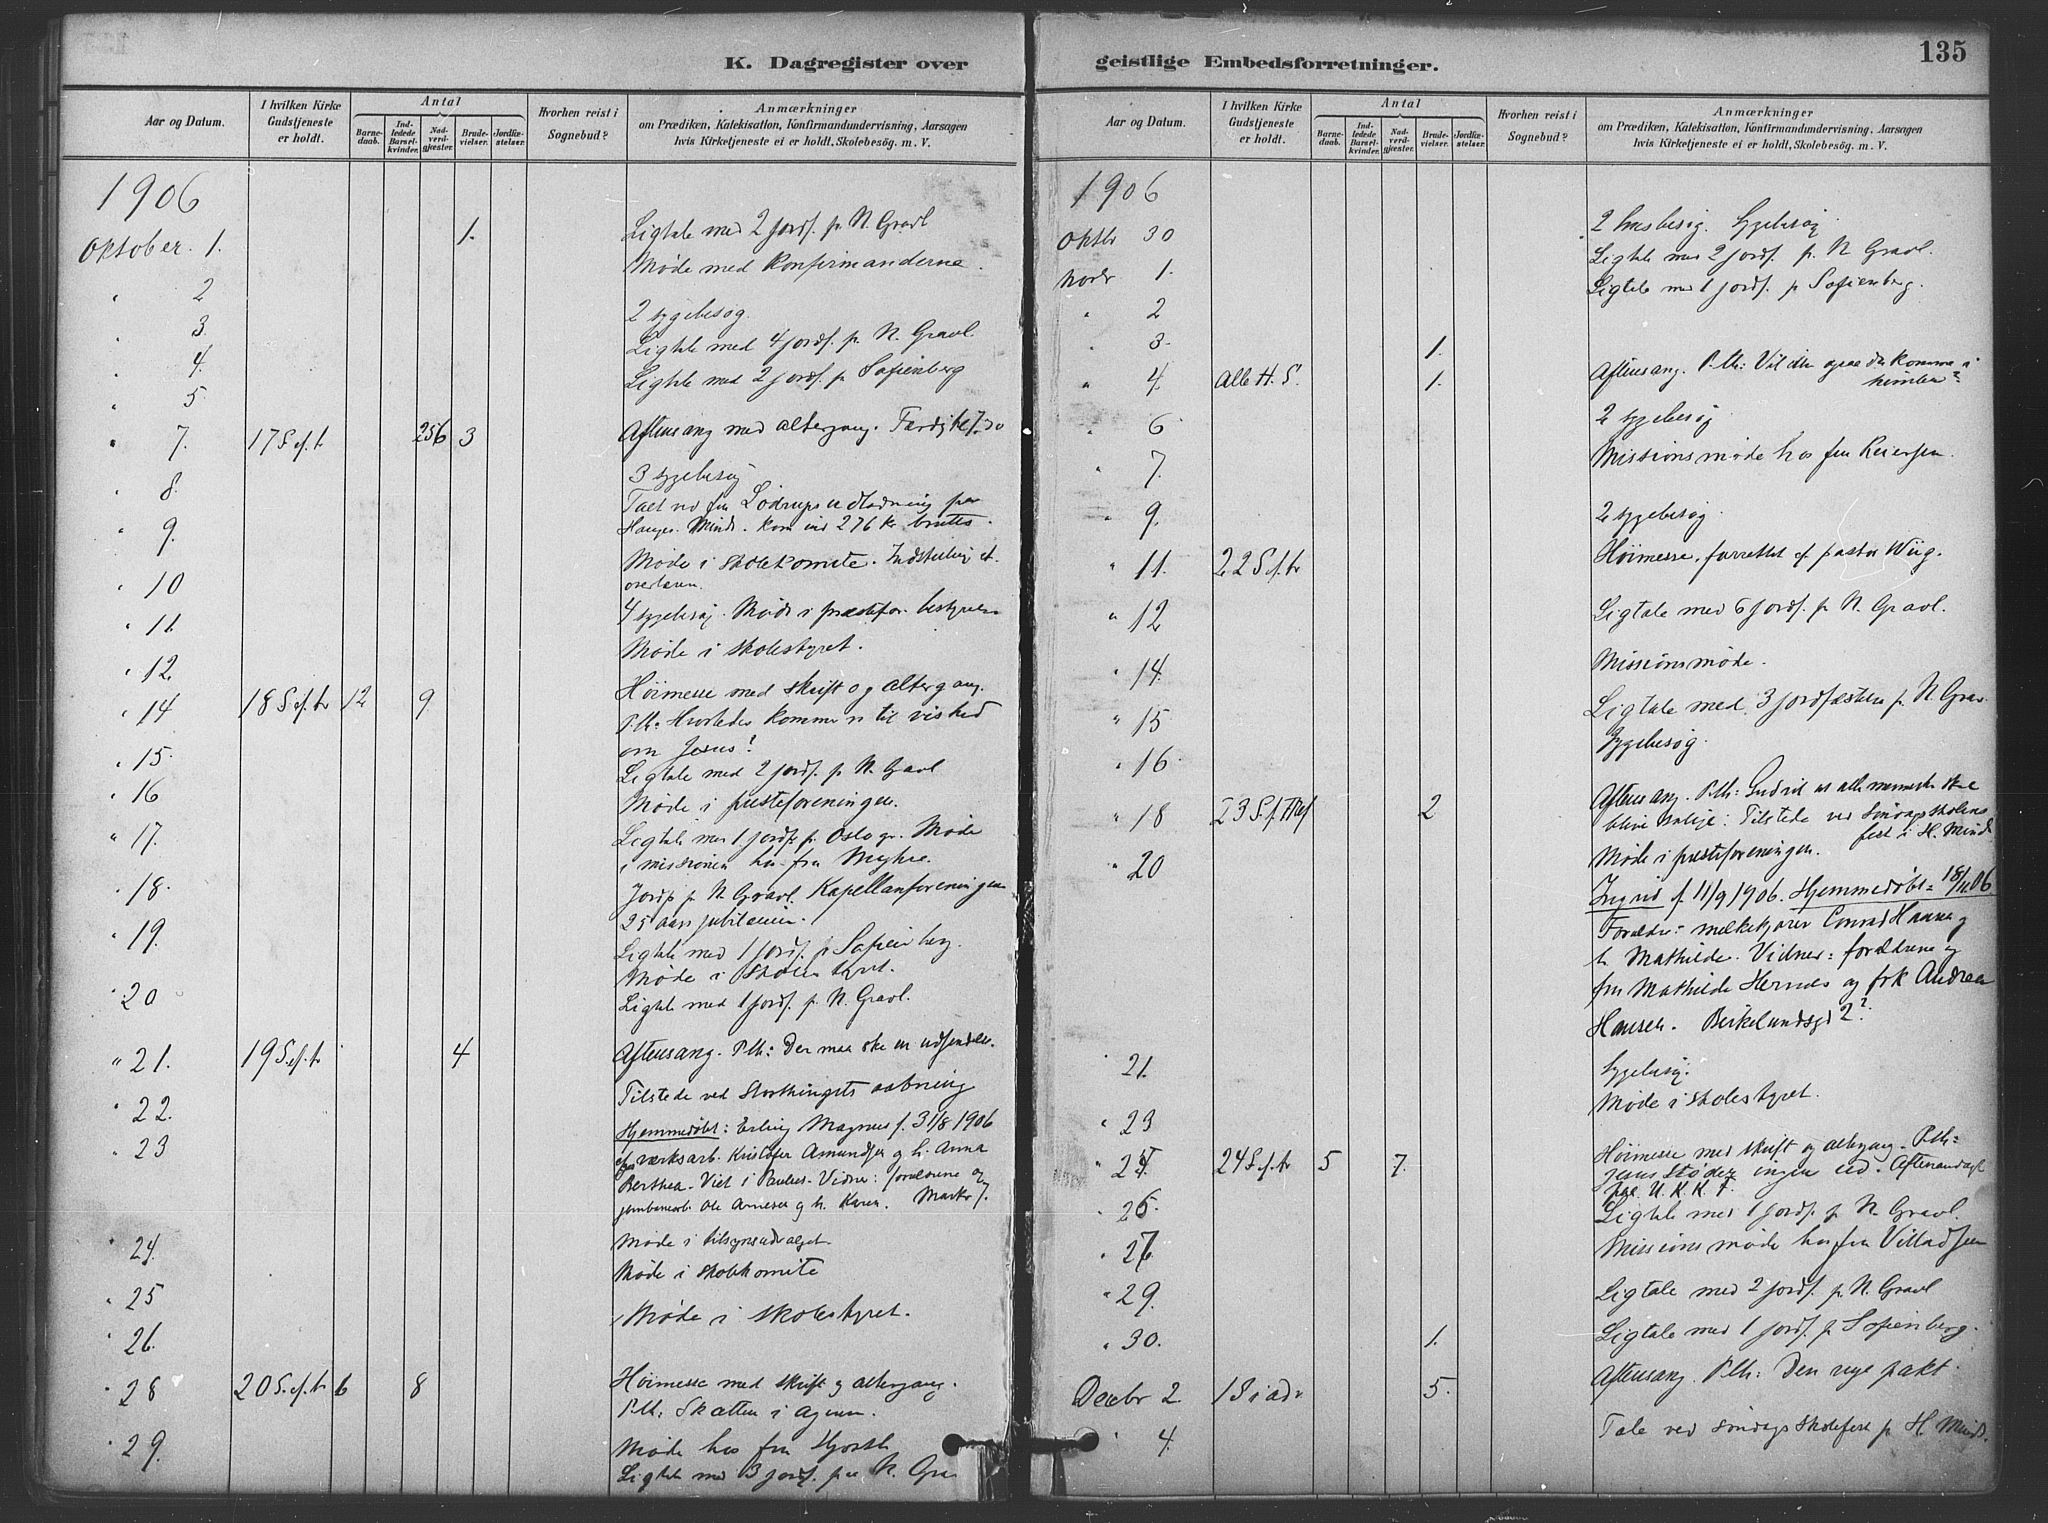 K. Dagregister over
Aar og Datum.
I hvilken Kirke Gudstjeneste er holdt.
Antal
Barnedaab.
Indledede Barselkvinder.
Nadverdgjæster.
Brudevielser.
Jordfæstelser.
Hvorhen reist i Sognebud?
Anmærkninger
om Prædiken, Katekisation, Konfirmandundervisning, Aarsagen
hvis Kirketjeneste ei er holdt, Skolebesög. m. V.
1906
Oktober. 1. 1. Ligtale med 2 jordf. p. N. Gravl
Møde med Konfirmanderne.
" 2
2 sygebesøg.
" 3.
Ligtale med 4 jordf. p. N. Gravl.
" 4.
Ligtale med 2 jordf. p Sofienberg
" 5
" 7. 17 S. e. f. tr 256 3 Aftensang med altergang. Færdig kl 7.30
3 sygebesøg
" 8.
Talt ved fru Lødrups udlodning paa
" 9. Hauges Minde. Kom ind 276 Kr. brutto.
Møde i skolekomite. Indstilling
" 10
4 sygebesøg. Møde i præstefor. bestyrelse
" 11
Møde i skolestyret.
" 12.
Høimesse med skrift og altergang.
" 14 18 S. e. f. tr 12 9 P. th: Hvorledes komme vi til vished
om Jesus?
" 15.
Ligtale med 2 jordf. p. N. Gravl
" 16
Møde i præsteforeningen.
" 17.
Ligtale med 1 jordf. p. Oslo gr. Møde
i missionen hos fru Myhre.
" 18.
Jordf p N. Gravl. Kapellanforeningens
25 aars jubilæum.
" 19.
Ligtale med 1 jordf. p Sofienberg.
Møde i skolestyret.
" 20
Ligtale med 1 jordf. p. N. Gravl.
" 21. 19 S. e. f. tr 4 Aftensang. P. th: Der maa ske en udsendelse.
Tilstede ved Storthingets aabning
" 22.
Hjemmedøbt: Erling Magnus f. 31/8 1906
" 23
værksarb. Kristofer Amundsen og h. Anna
Berthea. Viet i Paulus. Vidner: forældrene og
jernbanearb. Ole Arnesen og h. Karen. Markv 7.
Møde i tilsynsudvalget.
" 24.
Møde i skolekomite
" 25
Møde i skolestyret.
" 26.
" 28 20 S. e. f. tr 6 8 Høimesse med skrift og altergang.
P. th: Skatten i ageren.
" 29. Møde hos fru Hjorth
Ligtale med 3 jordf. paa N. Gra
geistlige Embedsforretninger.
135
Aar og Datum.
I hvilken Kirke Gudstjeneste er holdt.
Antal
Barnedaab.
Indledede Barselkvinder.
Nadverdgjæster.
Brudevielser.
Jordfæstelser.
Hvorhen reist i Sognebud?
Anmærkninger
om Prædiken, Katekisation, Konfirmandundervisning, Aarsagen
hvis Kirketjeneste ei er holdt, Skolebesög. m. V.
1906
Oktbr 30 2 husbesøg. Sygebesøg
Ligtale med 2 jordf. p. N. Gravl.
Novbr 1.
Ligtale med 1 jordf. p Sofienberg.
" 2
" 3. 1.
" 4. Alle H. S. 1. Aftensang. P. th: Vil du ogsaa komme i
himlen?
" 6 2 sygebesøg
" 7. Missionsmøde hos fru Reiersen.
" 9. 2 sygebesøg.
" 11. 22 S. e. f. tr Høimesse, forrettet af pastor Wiig.
" 12 Ligtale med 6 jordf. p N. Gravl.
" 14. Missionsmøde.
" 15 Ligtale med 3 jordfæstelser p. N. Grav
Sygebesøg.
" 16
" 18 23 S. e. f. tr 2 Aftensang. P. th: Gud vil at alle mennesker skal
blive salige: Tilstede ved Søndagsskolens
fest i H. Minde
" 20 Møde i præsteforeningen.
Ingrid f. 11/9 1906. Hjemmedøbt 18/11 06.
Forældre: melkekjører Conrad Hansen og
h. Mathilde. Vidner: forældrene og
fru Mathilde Hernæs og frk Andrea
Hansen. Birkelundsgd 2?
" 21. Sygebesøg.
Møde i skolestyret.
" 23
" 25 24 S. e. f. tr 5 7. Høimesse med skrift og altergang. P. th:
Jesus støder ingen ud. Aftenandagt
paa U. K. K. F.
" 26. Ligtale med 1 jordf. p N. Gravl.
" 27. Missionsmøde hos fru Villadsen
" 29. Ligtale med 2 jordf. p. N. Gravl
" 30. 1. Ligtale med 1 jordf. p Sofienberg.
Decbr 2. 1 S i adv 5. Aftensang. P. th: Den nye pakt.
" 4. Tale ved søndagsskolefest p H. Minde.